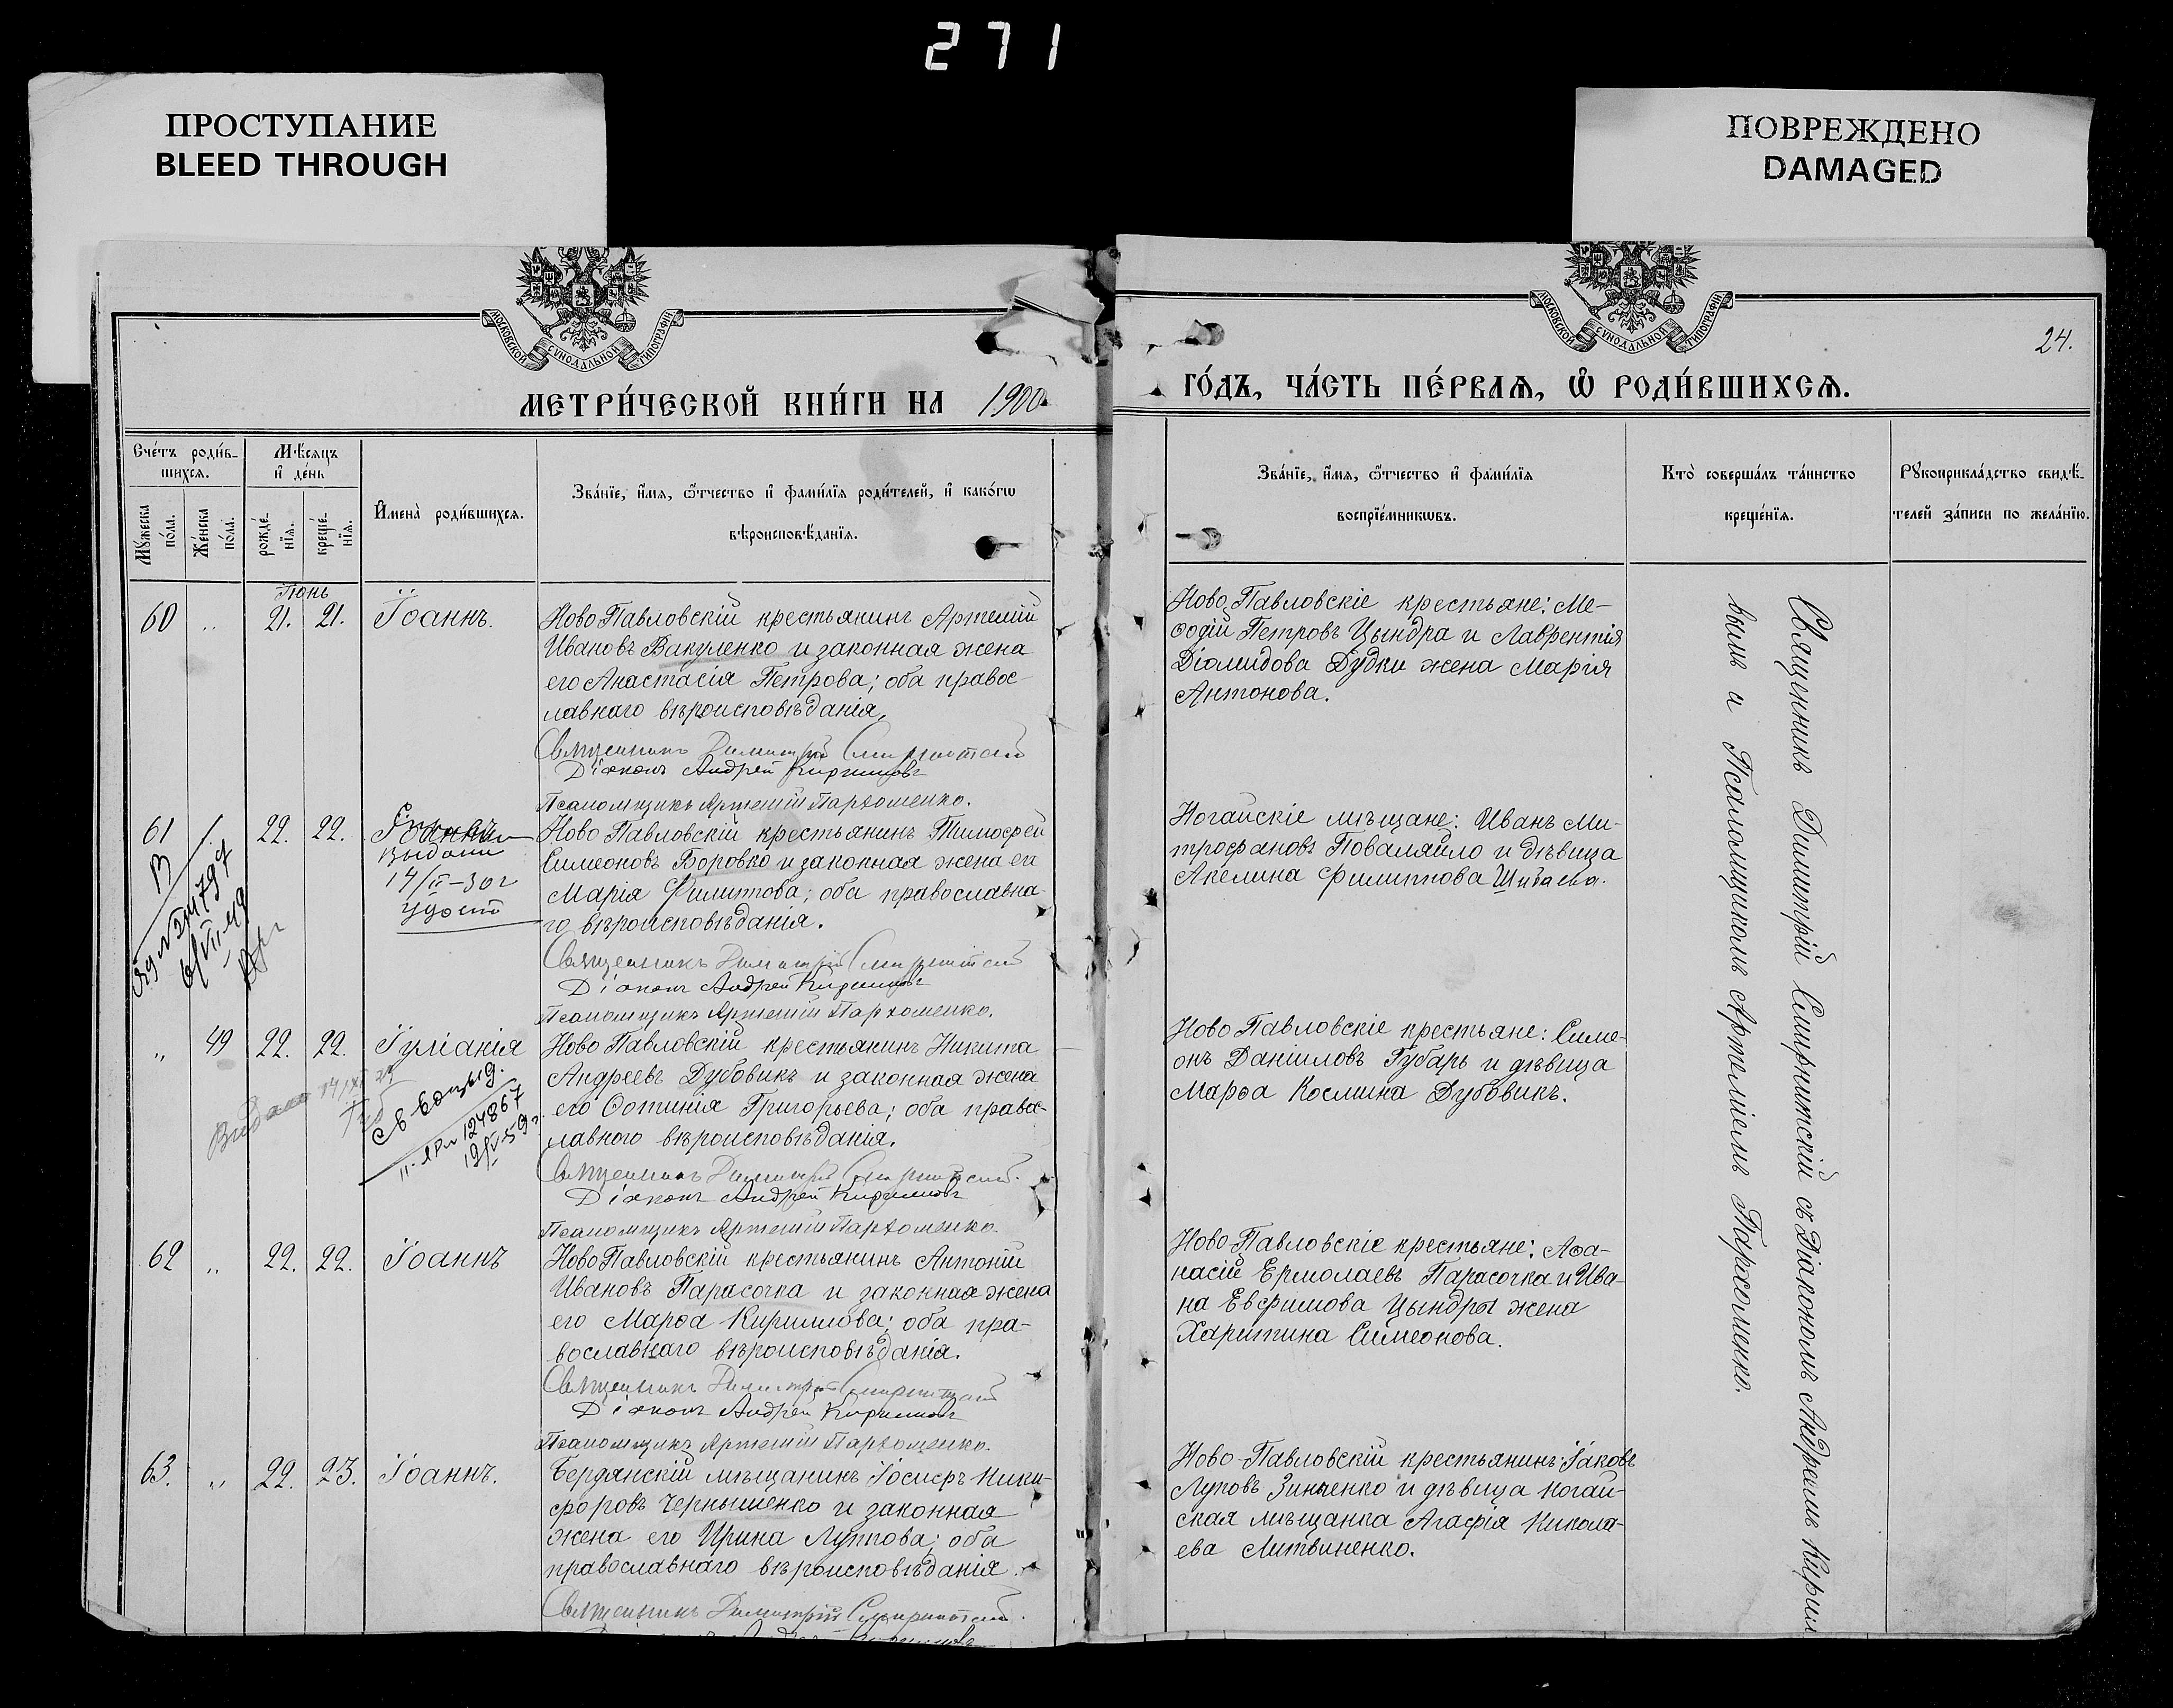 271
ПРОСТУПАНИЕ
BLEED THROUGH
ПОВРЕЖДЕНО
DAMAGED
МОСКОВСКОЙ СѴНОДАЛЬНОЙ ТИПОГРАФІИ
МОСКОВСКОЙ СѴНОДАЛЬНОЙ ТИПОГРАФІИ
24.
МЕТРИ́ЧЕСКОЙ КНИ́ГИ НА 1900
ГО́ДЪ, ЧА́СТЬ ПЕ́РВАѦ, Ѽ РОДИ́ВШИХСѦ.
Сче́тъ роди́в-
шихсѧ.
Мѣ́сѧцъ
и҆ де́нь
Мꙋжеска
по́ла.
Же́нска
по́ла.
рожде́-
нїѧ.
креще́-
нїѧ.
И҆мена̀ роди́вшихсѧ.
Зва́нїе, и҆́мѧ, ѻ҆́тчество и҆ фами́лїѧ роди́телей, и҆ како́гѡ
вѣроисповѣ́данїѧ.
Зва́нїе, и҆́мѧ, ѻ҆́тчество и҆ фами́лїѧ
воспрїе́мникѡвъ.
Кто̀ соверша́лъ та́инство
креще́нїѧ.
Рꙋкоприкла́дство свидѣ́-
телей за́писи по жела́нїю.
Іюнь
60 „ 21. 21. Іоаннъ.
Ново Павловскій крестьянинъ Артемій
Ивановъ Вакуленко и законная жена
его Анастасія Петрова; оба правос-
лавнаго вѣроисповѣданія.
Священникъ Димитрій Смирнитскій
Діаконъ Андрей Кирилловъ
Псаломщикъ Артемій Пархоменко.
Ново Павловскіе крестьяне: Ме-
ѳодій Петровъ Цындра и Лаврентія
Діомидова Дудки жена Марія
Антонова.
61 22. 22. Іоаннъ
выдани
14/II-30г
Ново Павловскій крестьянинъ Тимофей
Симеоновъ Боровко и законная жена его
Марія Филиппова; оба православна-
го вѣроисповѣданія.
Священникъ Димитрій Смирнитскій
Діаконъ Андрей Кирилловъ
Псаломщикъ Артемій Пархоменко.
Ногайскіе мѣщане: Иванъ Ми-
трофановъ Поваляйло и дѣвица
Акелина Филиппова
„ 49 22. 22. Іуліанія
Ново Павловскій крестьянинъ Никита
Андреевъ Дубовикъ и законная жена
его Фотинія Григорьева; оба правос-
лавнаго вѣроисповѣданія.
Священникъ Димитрій Смирнитскій.
Діаконъ Андрей Кирилловъ
Псаломщикъ Артемій Пархоменко.
124867
Ново Павловскіе крестьяне: Симе-
онъ Даніиловъ Губарь и дѣвица
Марѳа Космина Дубовикъ.
62 „ 22. 22. Іоаннъ
Ново Павловскій крестьянинъ Антоній
Ивановъ Парасочка и законная жена
его Марѳа Кириллова; оба пра-
вославнаго вѣроисповѣданія.
Священникъ Димитрій Смирнитскій
Діаконъ Андрей Кирилловъ
Псаломщикъ Артемій Пархоменко.
Ново-Павловскіе крестьяне: Аѳа-
насій Ермолаевъ Парасочка и Ива-
на Евфимова Цындры жена
Харитина Симеонова.
63. „ 22. 23. Іоаннъ.
Бердянскій мѣщанинъ Іосифъ Ники-
форовъ Чернышенко и законная
жена его Ирина Луппова; оба
православнаго вѣроисповѣданія.
Священникъ Димитрій Смирнитскій.
Ново-Павловскій крестьянинъ Іаковъ
Луповъ Зинченко и дѣвица ногай-
ская мѣщанка Агафія Никола-
ева Литвиненко.
Священникъ Димитрій Смирнитскій съ Діакономъ Андреемъ Кирилло-
вымъ и Псаломщикомъ Артеміемъ Пархоменко.